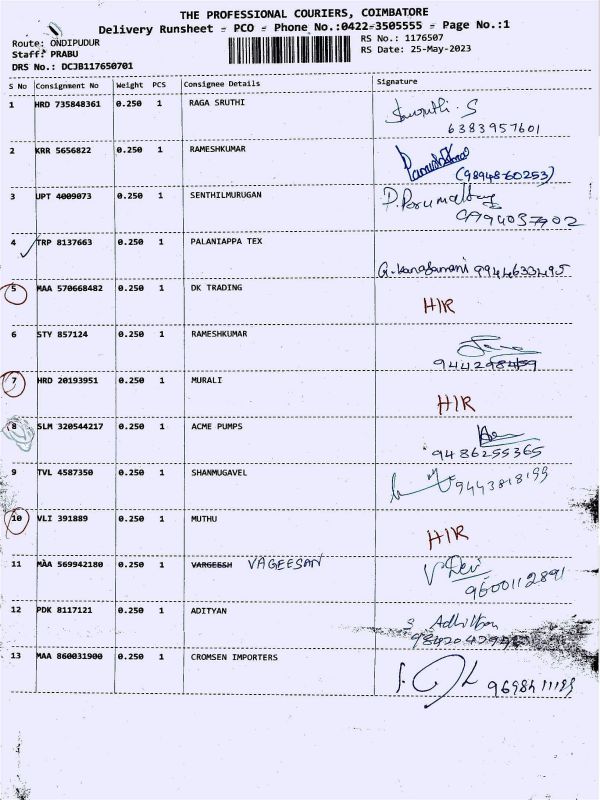 THE PROFESSIONAL COURIERS, COIMBATORE
Delivery Runsheet - PCO - Phone No.:0422-3505555 - Page No.:1
Route: ONDIPUDUR
RS No.: 1176507
Staff: PRABU
RS Date: 25-May-2023
DRS No.: DCJB117650701
S No Consignment No Weight PCS Consignee Details Signature
1 HRD 735848361 0.250 1 RAGA SRUTHI
6383957601
2 KRR 5656822 0.250 1 RAMESHKUMAR
(98948-60253)
3 UPT 4009073 0.250 1 SENTHILMURUGAN
4 TRP 8137663 0.250 1 PALANIAPPA TEX
5 MAA 570668482 0.250 1 DK TRADING HIR
6 STY 857124 0.250 1 RAMESHKUMAR
7 HRD 20193951 0.250 1 MURALI HIR
8 SLM 320544217 0.250 1 ACME PUMPS
9486255365
9 TVL 4587350 0.250 1 SHANMUGAVEL
9443818199
10 VLI 391889 0.250 1 MUTHU HIR
11 MAA 569942180 0.250 1 VARGEESH VAGEESAN V Devi
9600112891
12 PDK 8117121 0.250 1 ADITYAN
13 MAA 860031900 0.250 1 CROMSEN IMPORTERS